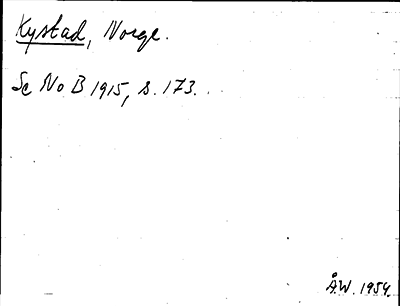 Kystad, Norge.
Se No B 1915, s. 173.
Å.W. 1954.